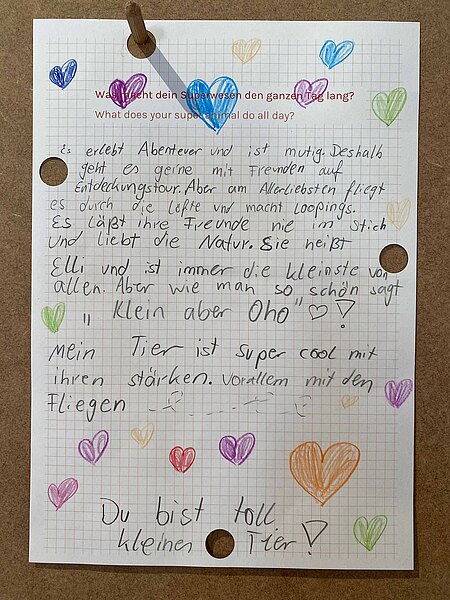 Was macht dein Superwesen den ganzen Tag lang?
What does your super animal do all day?
Es erlebt Abenteuer und ist mutig. Deshalb
geht es gerne mit Freunden auf
Entdeckungstour. Aber am Allerliebsten fliegt
es durch die Löfte und macht Loopings.
Es läßt ihre Freunde nie im Stich
und liebt die Natur. Sie heißt
Elli und ist immer die kleinste von
allen. Aber wie man so schön sagt
„ Klein aber Oho" ♡ !
Mein Tier ist super cool mit
ihren stärken. vorallem mit den
Fliegen
Du bist toll
kleines Tier !